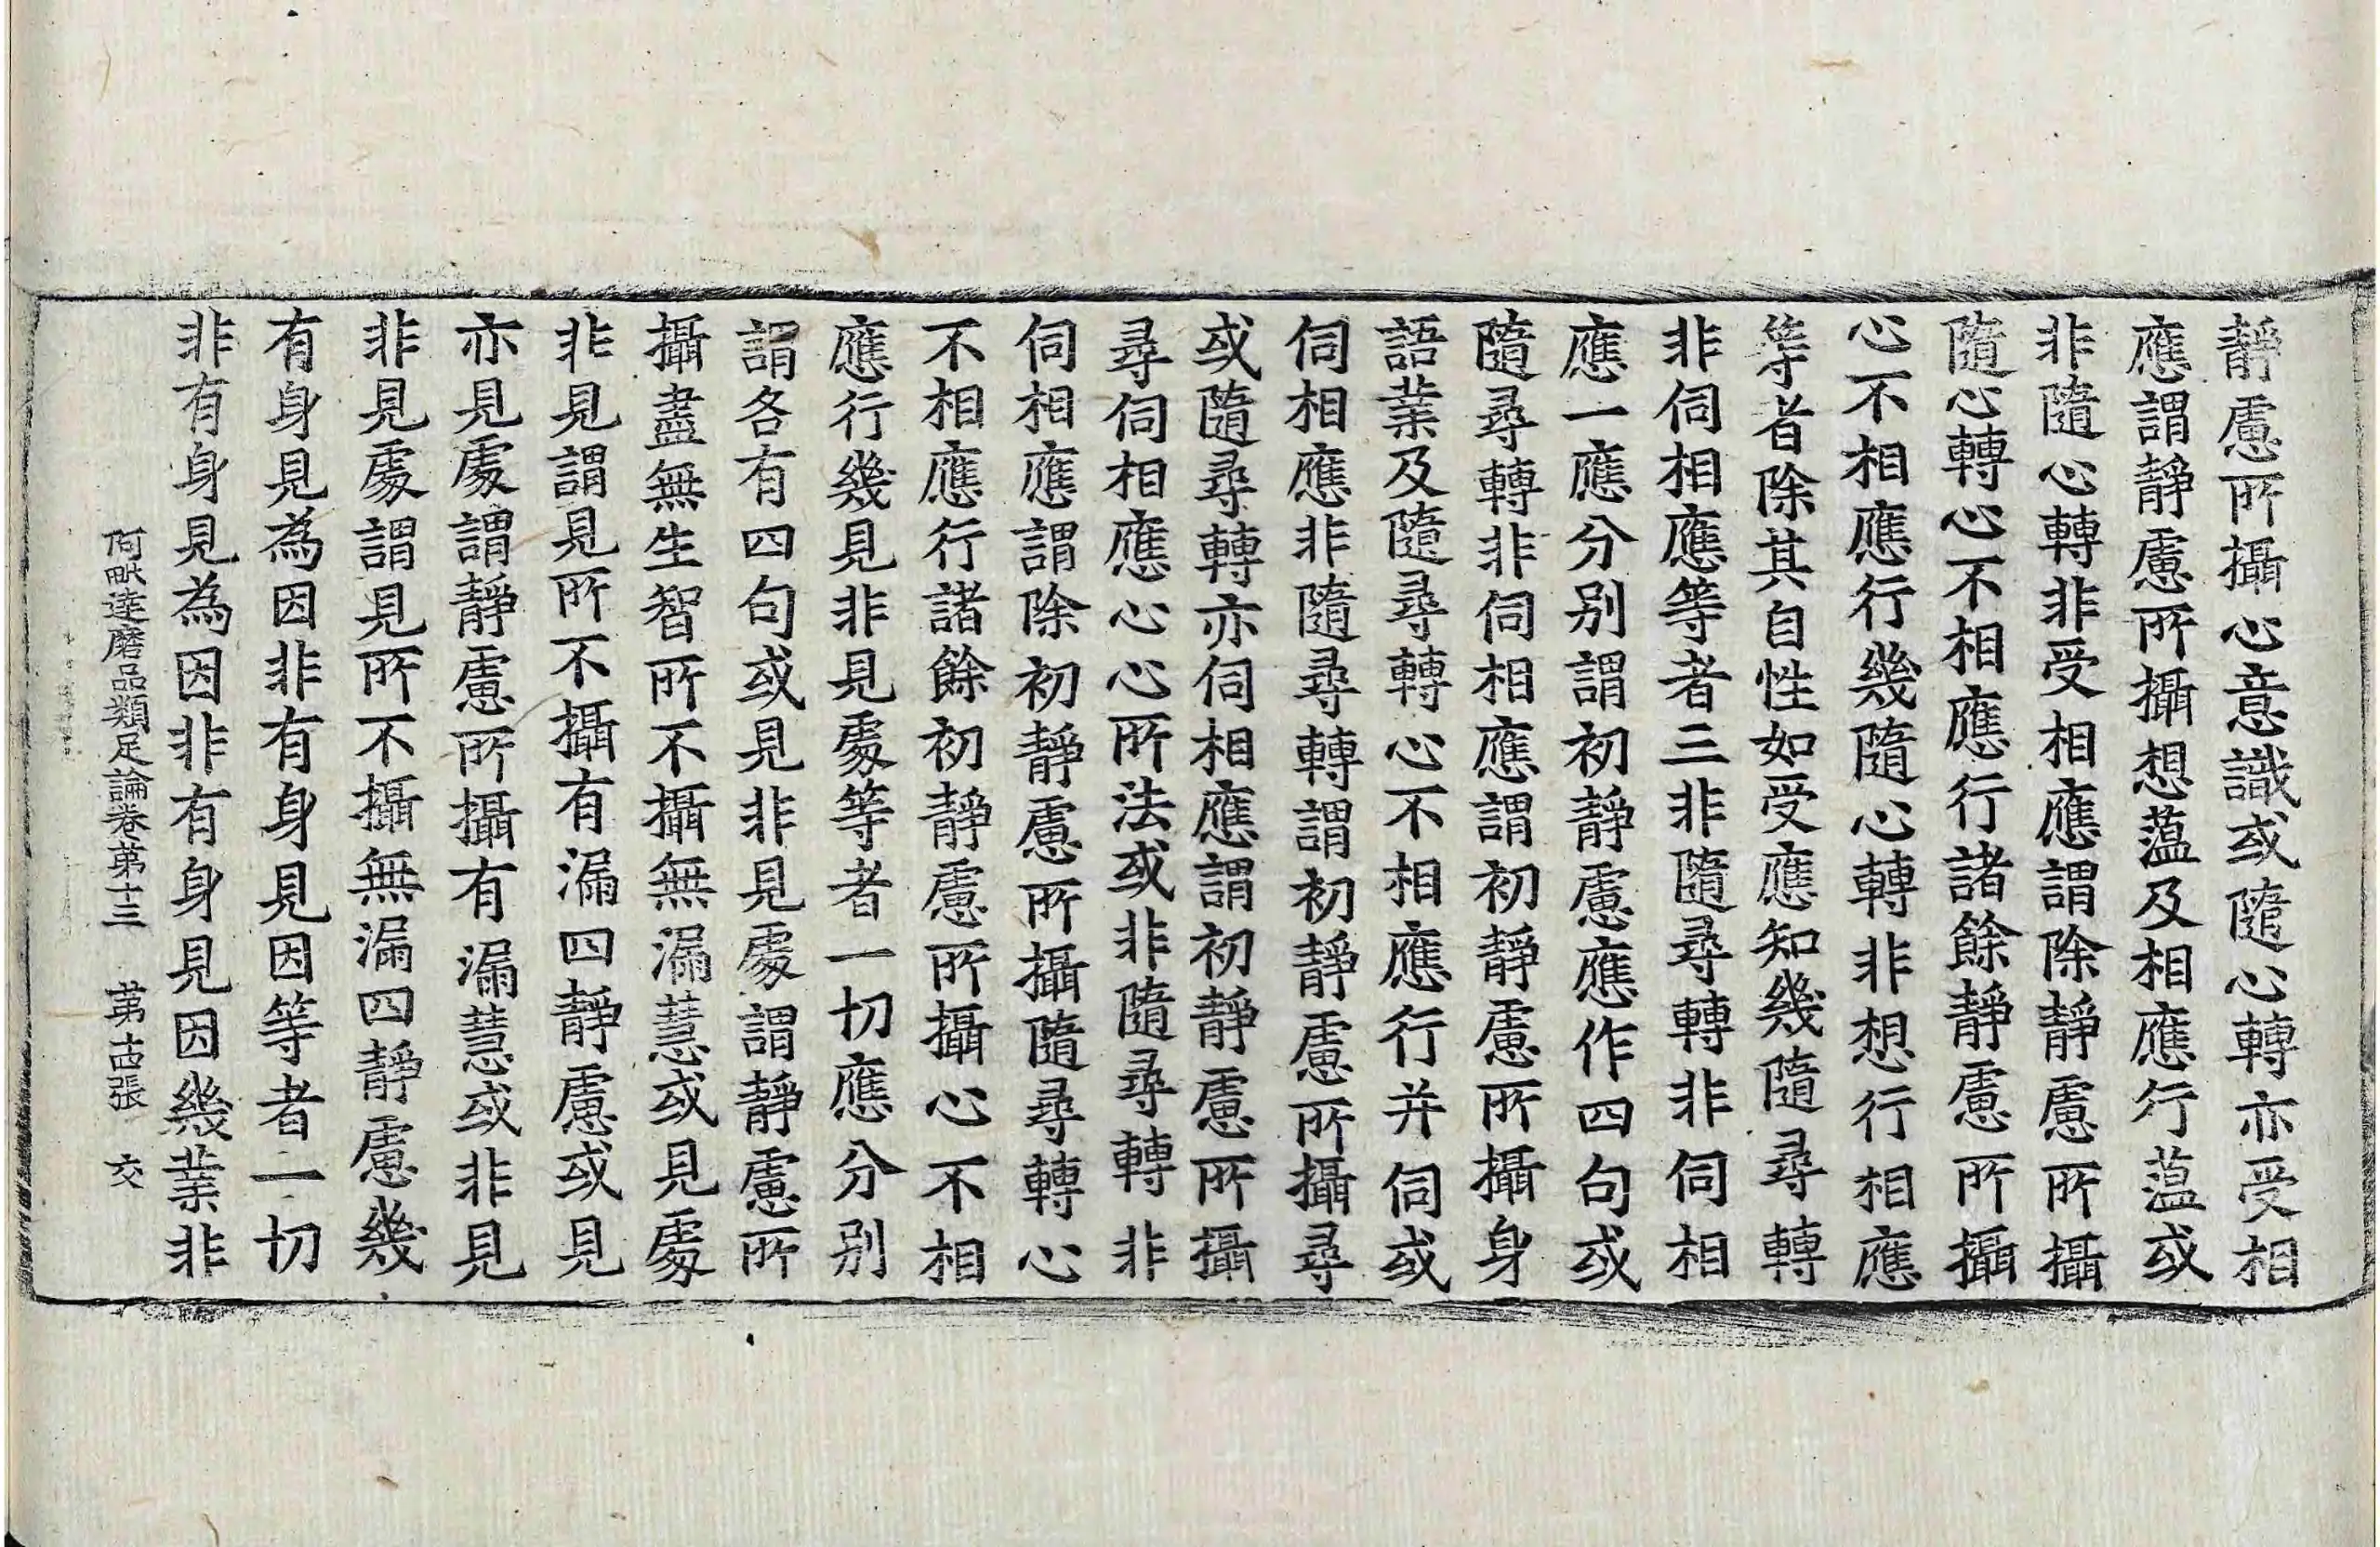 靜慮所攝心意識或隨心轉亦受相
應謂靜慮所攝想蘊及相應行蘊或
非隨心轉非受相應謂除靜慮所攝
隨心轉心不相應行諸餘靜慮所攝
心不相應行幾隨心轉非想行相應
等者除其自性如受應知幾隨尋轉
非伺相應等者三非隨尋轉非伺相
應一應分别謂初靜慮應作四句或
隨尋轉非伺相應謂初靜慮所攝身
語業及隨尋轉心不相應行并伺或
伺相應非隨尋轉謂初靜慮所攝尋
或隨尋轉亦伺相應謂初靜慮所攝
尋伺相應心心所法或非隨尋轉非
伺相應謂除初靜慮所攝隨尋轉心
不相應行諸餘初靜慮所攝心不相
應行幾見非見處等者一切應分别
謂各有四句或見非見處謂靜慮所
攝盡無生智所不攝無漏慧或見處
非見謂見所不攝有漏四靜慮或見
亦見處謂靜慮所攝有漏慧或非見
非見處謂見所不攝無漏四靜慮幾
有身見為因非有身見因等者一切
非有身見為因非有身見因幾業非
阿毗達磨品類足論卷苐十三 苐十四張 交